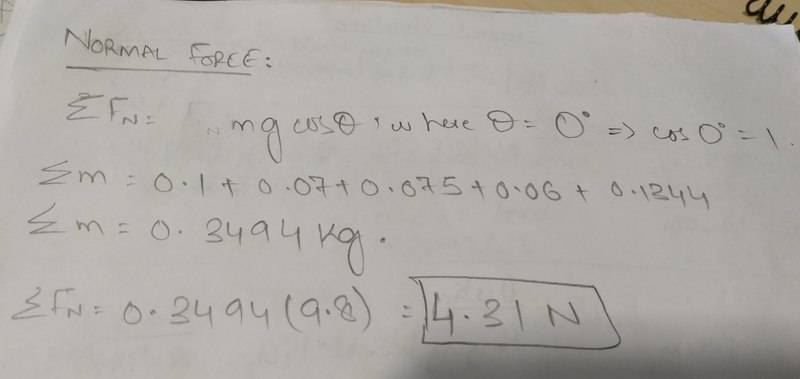 NORMAL FORCE:
ΣF_N = mg cosθ, where θ = 0° => cos 0° = 1.
Σm = 0.1 + 0.07 + 0.075 + 0.06 + 0.1344
Σm = 0.3494 kg.
ΣF_N = 0.3494 (9.8) = 4.31 N